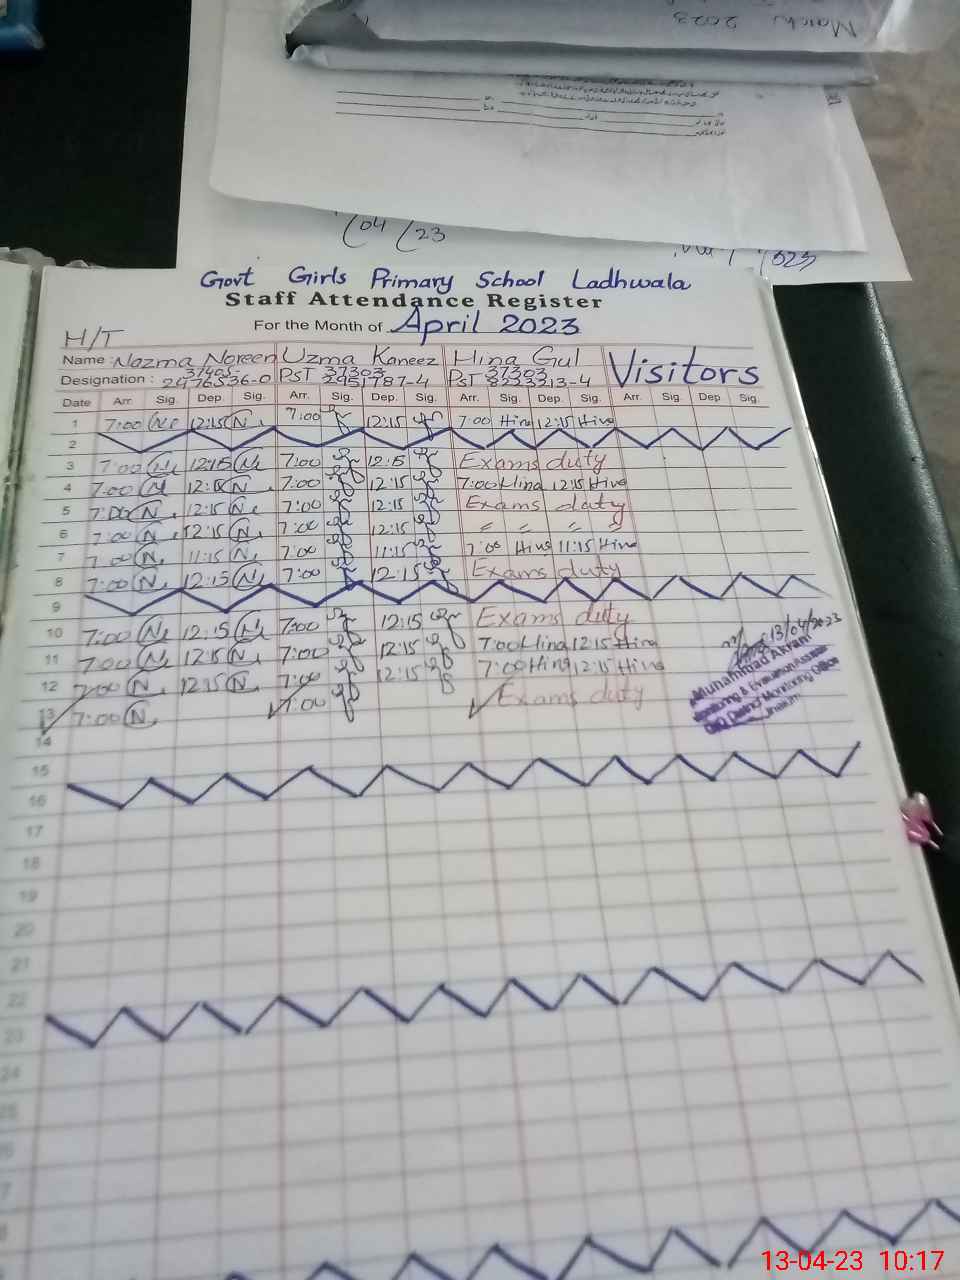 March 2023
04/23
Govt Girls Primary School Ladhwala
Staff Attendance Register
For the Month of April 2023
H/T
Name : Nazma Noreen Uzma Kaneez Hina Gul Visitors
Designation : 37405-2976536-0 PST 37303 2951787-4 PST 37303 8223213-4
Date Arr. Sig. Dep. Sig. Arr. Sig. Dep. Sig. Arr. Sig. Dep. Sig. Arr. Sig. Dep. Sig.
1 7:00 12:15 N 7:00 12:15 7:00 Hina 12:15 Hina
2
3 7:00 N 12:15 N 7:00 12:15 Exams duty
4 7:00 N N 7:00 12:15 7:00 Hina 12:15 Hina
5 7:00 N 12:15 N 7:00 12:15 Exams duty
6 7:00 N 12:15 N 7:00 12:15 " " " "
7 7:00 N 11:15 N 7:00 11:15 7:00 Hina 11:15 Hina
8 7:00 N 12:15 N 7:00 12:15 Exams duty
9
10 7:00 N 12:15 N 7:00 12:15 Exams duty
11 7:00 N 12:15 N 7:00 12:15 7:00 Hina 12:15 Hina
12 7:00 N 12:15 N 7:00 12:15 7:00 Hina 12:15 Hina
13 7:00 N 7:00 Exams duty
13/04/2023
Muhammad Akram
Monitoring & Evaluation Assistant
District Monitoring Office
Jhelum
14
15
16
17
18
19
20
21
22
23
24
25
13-04-23 10:17